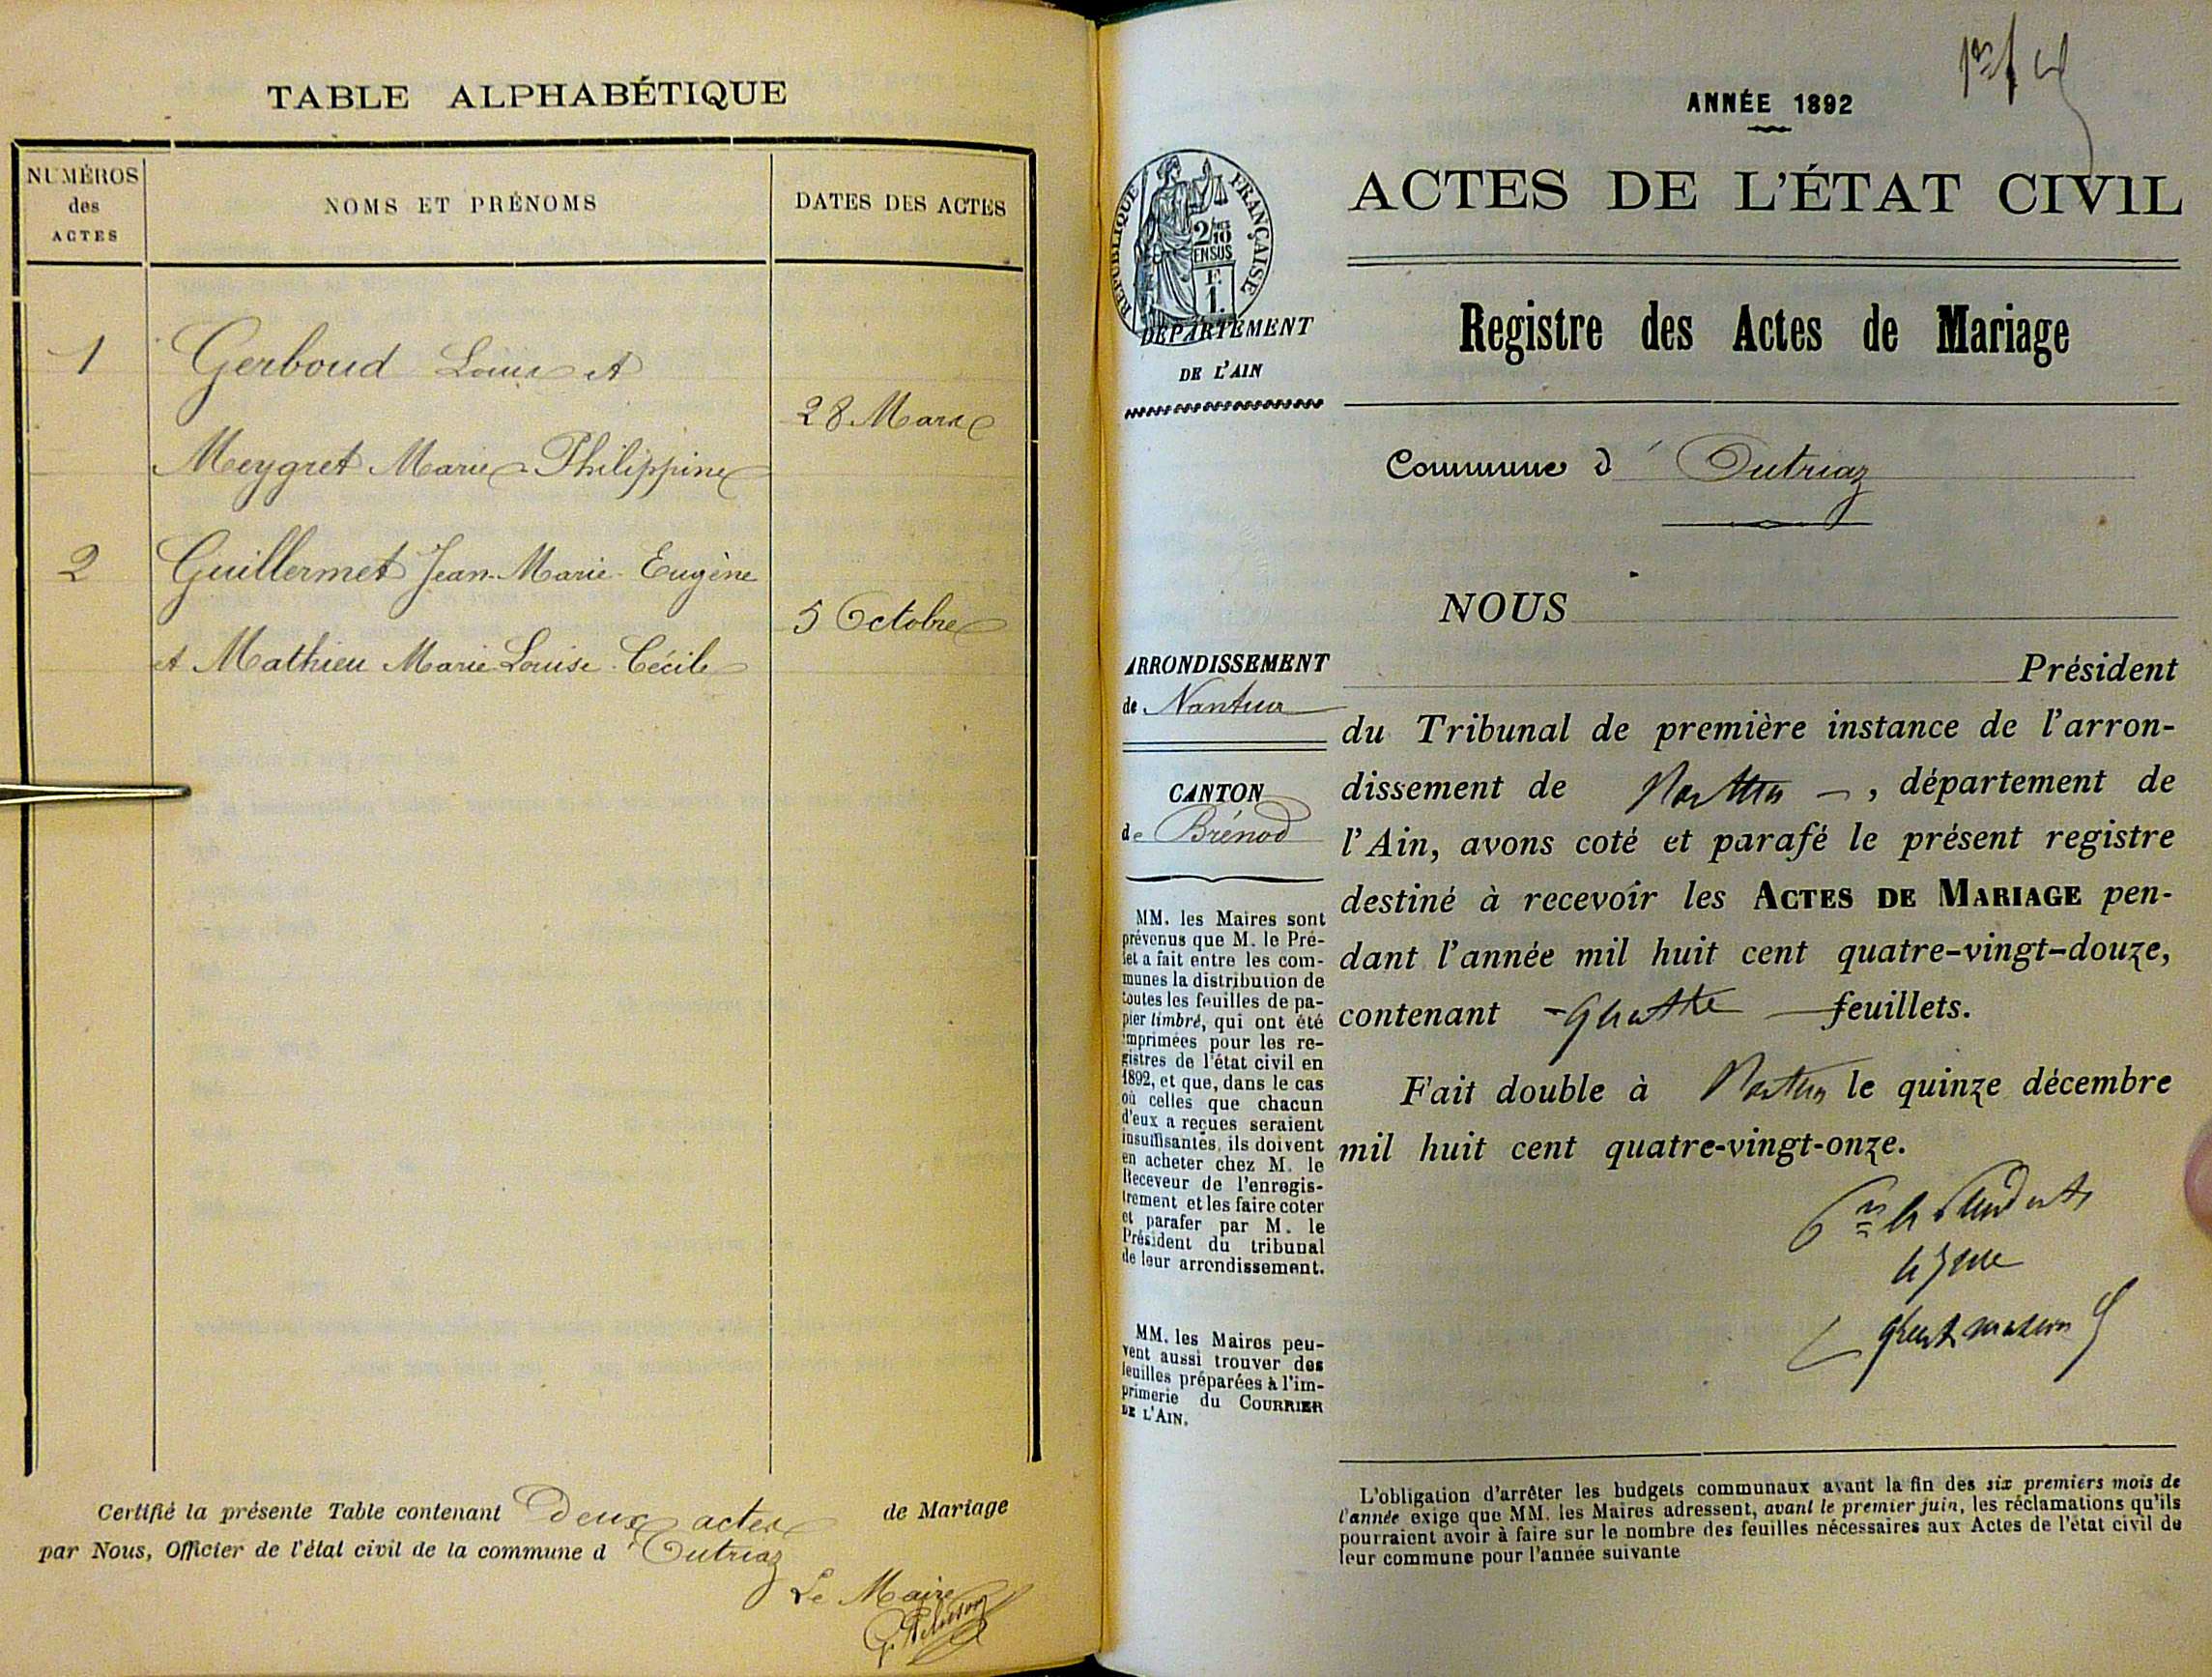 TABLE ALPHABÉTIQUE
NUMÉROS
des
ACTES
NOMS ET PRÉNOMS
DATES DES ACTES
1
Gerboud Louis et
28 Mars
Meygret Marie-Philippine
2
Guillermet Jean-Marie-Eugène
5 Octobre
et Mathieu Marie-Louise-Cécile
Certifié la présente Table contenant Deux actes de Mariage
par Nous, Officier de l'état civil de la commune d'Outriaz
Le Maire
ANNÉE 1892
RÉPUBLIQUE FRANÇAISE
2/10
EN SUS
F.
1.
ACTES DE L'ÉTAT CIVIL
DÉPARTEMENT
DE L'AIN
Registre des Actes de Mariage
Commune d'Outriaz
NOUS
ARRONDISSEMENT
de Nantua
CANTON
de Brénod
MM. les Maires sont
prévenus que M. le Pré-
fet a fait entre les com-
munes la distribution de
toutes les feuilles de pa-
pier timbré, qui ont été
imprimées pour les re-
gistres de l'état civil en
1892, et que, dans le cas
où celles que chacun
d'eux a reçues seraient
insuffisantes, ils doivent
en acheter chez M. le
Receveur de l'enregis-
trement et les faire coter
et parafer par M. le
Président du tribunal
de leur arrondissement.
MM. les Maires peu-
vent aussi trouver des
feuilles préparées à l'im-
primerie du COURRIER
DE L'AIN.
Président
du Tribunal de première instance de l'arron-
dissement de Nantua —, département de
l'Ain, avons coté et parafé le présent registre
destiné à recevoir les ACTES DE MARIAGE pen-
dant l'année mil huit cent quatre-vingt-douze,
contenant - quatre — feuillets.
Fait double à Nantua le quinze décembre
mil huit cent quatre-vingt-onze.
L'obligation d'arrêter les budgets communaux avant la fin des six premiers mois de
l'année exige que MM. les Maires adressent, avant le premier juin, les réclamations qu'ils
pourraient avoir à faire sur le nombre des feuilles nécessaires aux Actes de l'état civil de
leur commune pour l'année suivante